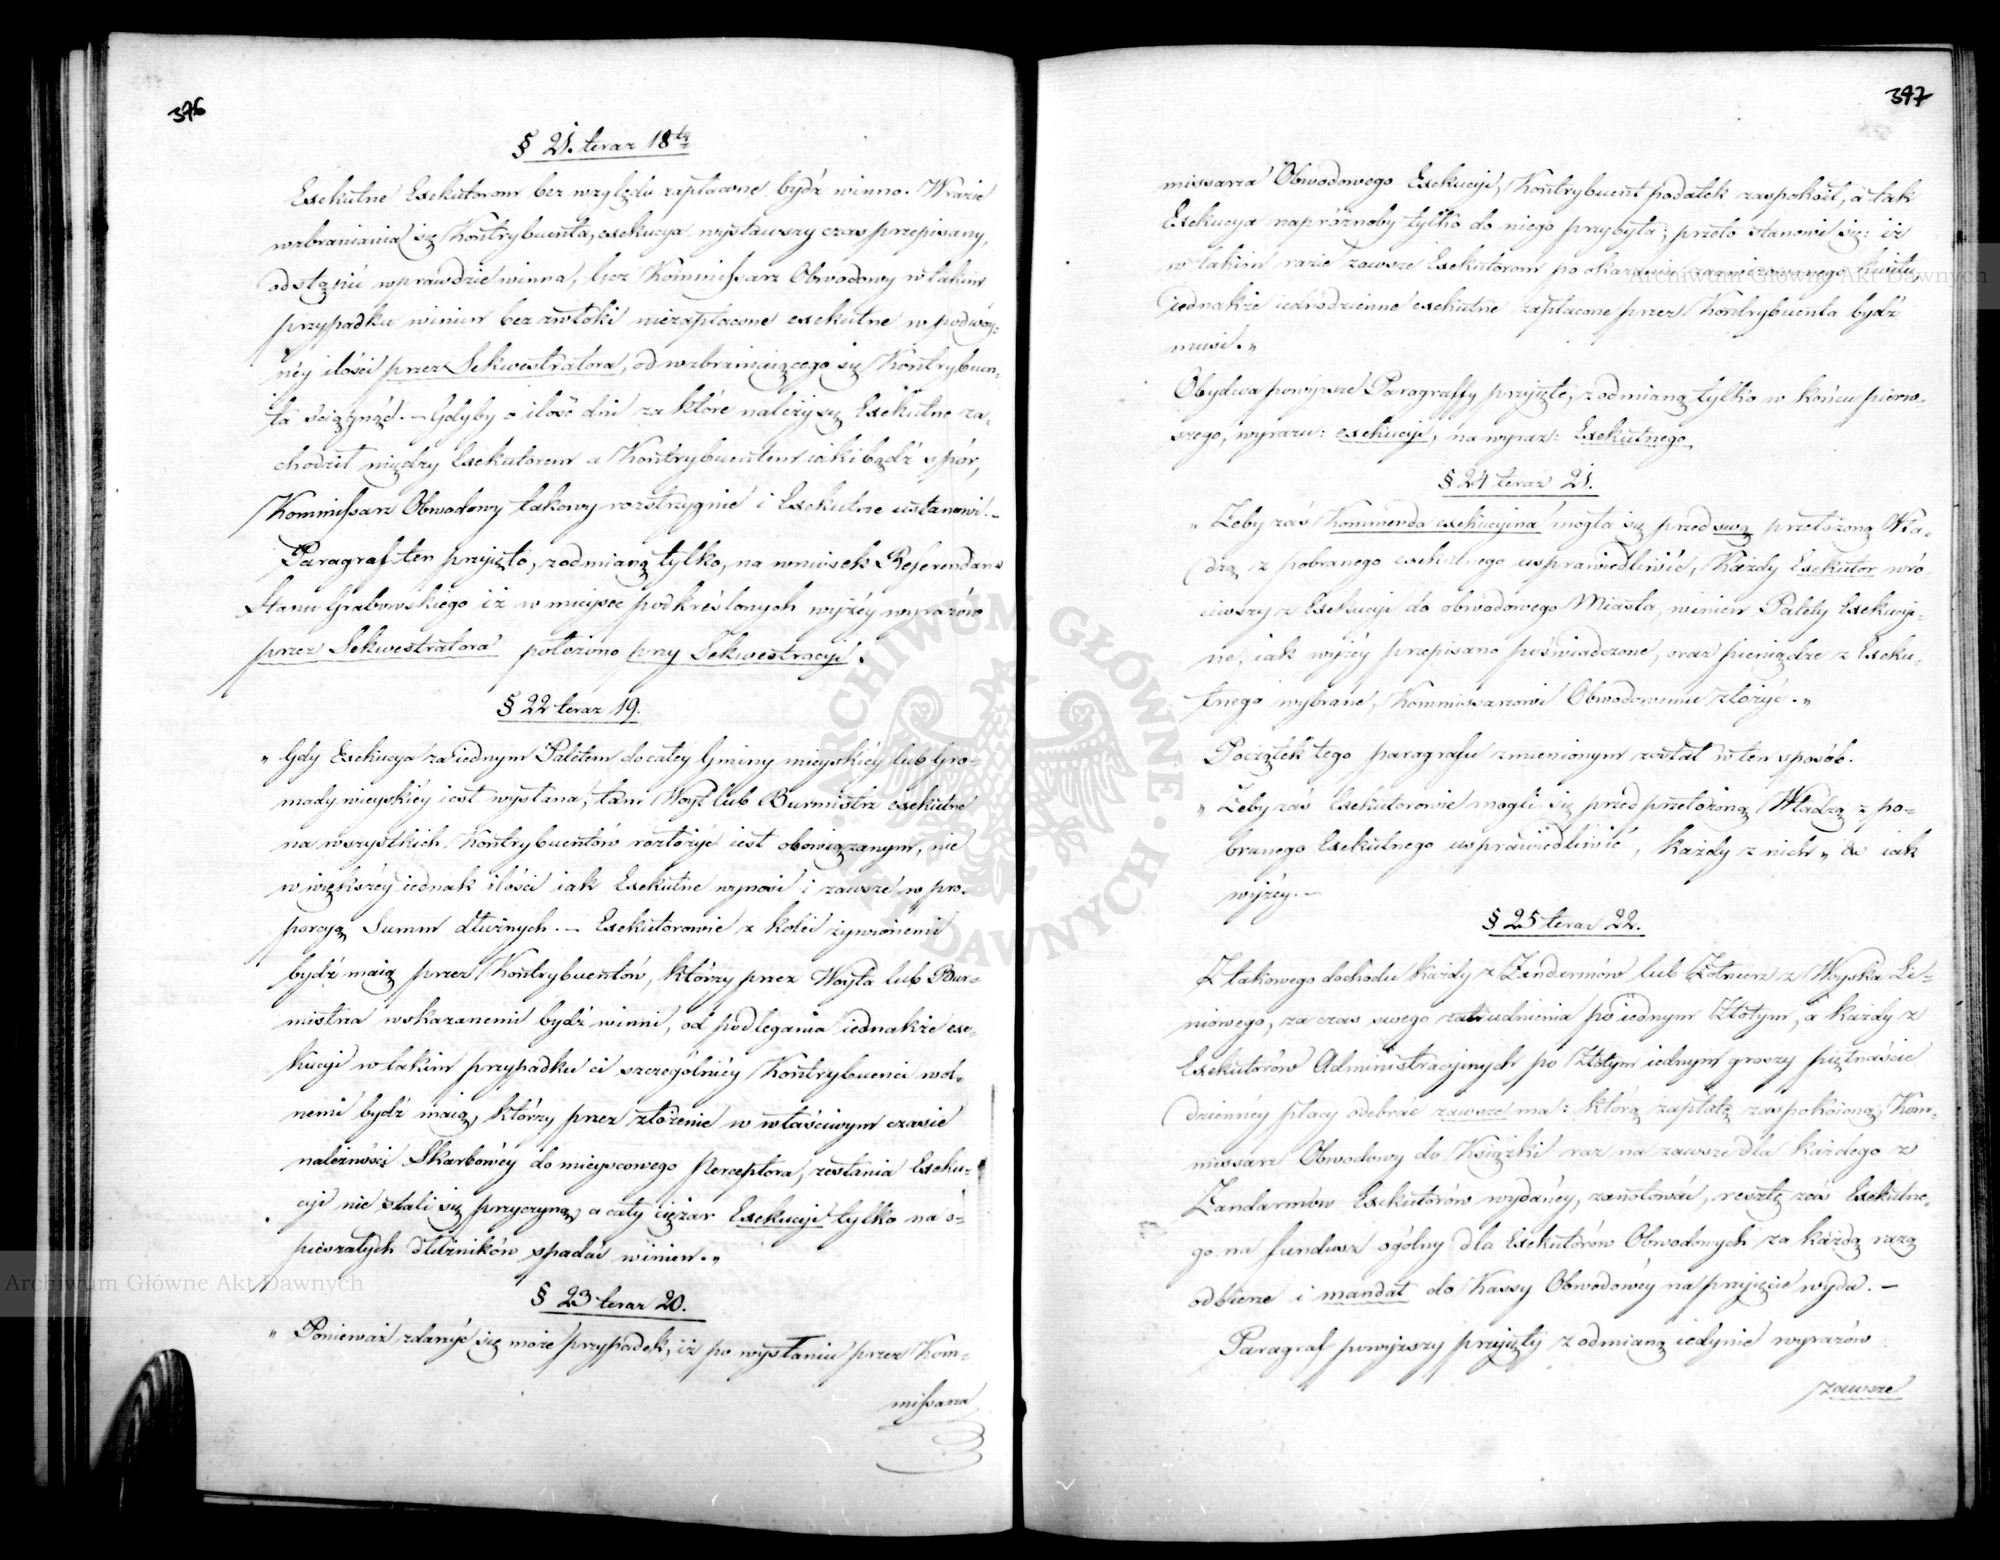 376
§ 21. teraz 18ty
Exekutne Exekutorom bez względu zapłacone bydź winno. W razie
wzbraniania się Kontrybuenta, exekucya wystawszy czas przepisany,
odstąpić wprawdzie winna, lecz Kommissarz Obwodowy w takim
przypadku winien bez zwłoki niezapłacone exekutne w podwóy-
néy ilości przez Sekwestratora, od wzbraniaiącego się Kontrybuen-
ta ściągnąć. – Gdyby o ilość dni za które należy się Exekutne za-
chodził między Exekutorem a Kontrybuentem iaki bądź spór,
Kommissarz Obwodowy takowy rozstrzygnie i Exekutne ustanowi. –
Paragraf ten przyięto, z odmianą tylko, na wniosek Referendarza
Stanu Grabowskiego iż w mieysce podkréślonych wyżéy wyrazów
przez Sekwestratora położono przy Sekwestracyi.
§ 22 teraz 19.
„ Gdy Exekucya za iednym Paletem do całéy Gminy mieyskiéy lub Gro-
mady wieyskiéy iest wysłana, tam Woyt lub Burmistrz exekutne
na wszystkich Kontrybuentów rozłożyć iest obowiązanym, nie
w większéy iednak ilości iak Exekutne wynosi i zawsze w pro-
porcyą Summ dłużnych. – Exekutorowie z kolei żywionemi
bydź maią przez Kontrybuentów, którzy przez Woyta lub Bur-
mistrza wskazanemi bydź winni, od podlegania iednakże exe-
kucyi w takim przypadku ci szczególniéy Kontrybuenci wol-
nemi bydź maią, którzy przez złożenie w właściwym czasie
należności Skarbowéy do mieyscowego Perceptora, zesłania Exeku-
cyi nie stali się przyczyną, a cały ciężar Exekucyi tylko na o-
pieszałych dłużników spadać winien.„
§ 23 teraz 20.
„ Ponieważ zdarzyć się może przypadek, iż po wysłaniu przez Kom-
missarza
397
missarza Obwodowego Exekucyi, Kontrybuent podatek zaspokoił, a tak
Exekucya napróżnoby tylko do niego przybyła; przeto stanowi się: iż
w takim razie zawsze Exekutorom po okazaniu zawizowanego kwitu
iednakże iednodzienne exekutne zapłacone przez Kontrybuenta bydź
musi.„
Obydwa powyższe Paragraffy przyięte, z odmianą tylko w końcu pierw-
szego, wyrazu: exekucyi, na wyraz: Exekutnego
§ 24 teraz 21.
„ Żeby zaś Kommenda exekucyina mogła się przed swą przełożoną Wła-
dzą z pobranego exekutnego usprawiedliwić, Każdy Exekutor wró-
ciwszy z Exekucyi do obwodowego Miasta, winien Palety Exekucyi-
ne, iak wyżéy przepisano poświadczone, oraz pieniądze z Exeku-
tnego wybrane, Kommissarzowi Obwodowemu złożyć.„
Początek tego paragrafu zmienionym został w ten sposób.
„ Żeby zaś Exekutorowie mogli się przed przełożoną Władzą z po-
branego Exekutnego usprawiedliwić, każdy z nich„ &c iak
wyżéy. –
§ 25 teraz 22.
Z takowego dochodu każdy z Żandarmów lub Żołnierz z Woyska Li-
niowego, za czas swego zatrudnienia po iednym Złotym, a każdy z
Exekutorów Administracyinych po Złotym iednym groszy piętnaście
dziennéy płacy odebrać zawsze ma: którą zapłatę zaspokóioną, Kom-
missarz Obwodowy do Książki raz na zawsze dla każdego z
Żandarmów Exekutorów wydanéy, zanotować, resztę zaś Exekutne-
go na fundusz ogólny dla Exekutorów Obwodowych za każdą razą
odbierze i mandat do Kassy Obwodowéy na przyięcie wyda. –
Paragraf powyższy przyięty z odmianą iedynie wyrazów
zawsze
ARCHIWUM GŁÓWNE AKT DAWNYCH
Archiwum Główne Akt Dawnych
Archiwum Główne Akt Dawnych